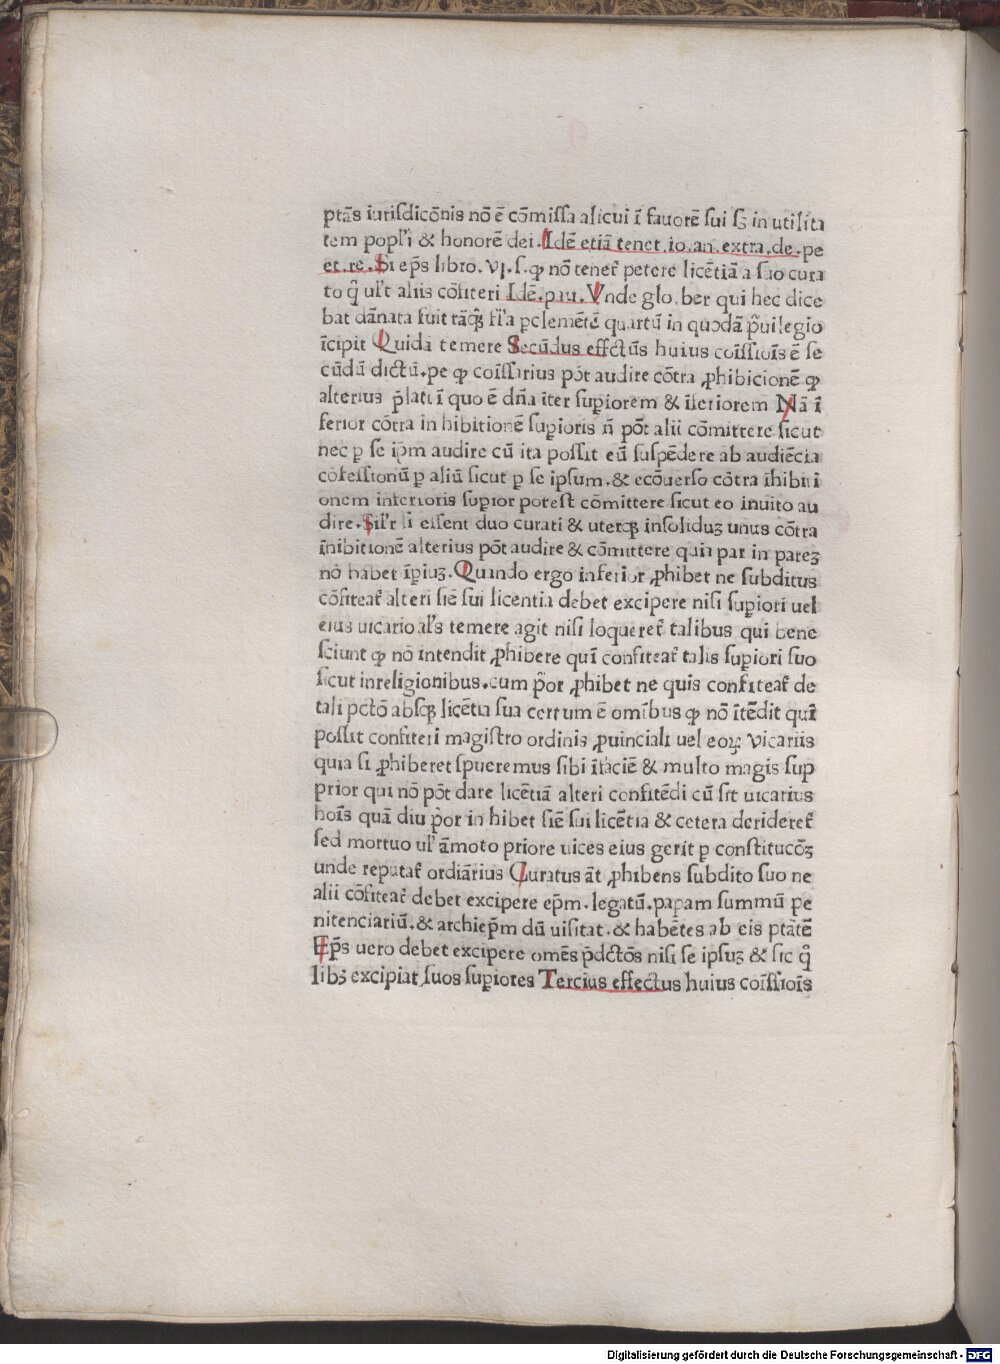 ptās iurisdicōnis nō ē cōmissa alicui ī fauorē sui sꝫ in utilita
tem popl'i & honorē dei. Idē etiā tenet. io. an. extra. de. pe
et. re. Si ep̄s libro. VI. s. ꝙ nō tenet᷑ petere licētiā a suo cura
to q̄ ul't aliis cōfiteri Idē. pau. Vnde glo. ber qui hec dice
bat dānata fuit tāꝗ̄ fl'a ꝑ clemētē quartū in quodā p̄uilegio
īcipit Quidā temere Secūdus effctūs huius coīssiōis ē se
cūdū dictū. pe ꝙ coīssarius pōt audire cōtra ꝓhibicionē ꝙ
alterius p̄lati ī quo ē dn̄a īter suꝑiorem & īferiorem Nā ī
ferior cōtra in hibitionē suꝑioris n̄ pōt alii cōmittere sicut
nec ꝑ se ip̄m audire cū ita possit eū suspēdere ab audiēcia
cōfessionū ꝑ aliū sicut ꝑ se ipsum. & ecōuerso cōtra īhibiti
onem inferioris suꝑior potest cōmittere sicut eo inuito au
dire. Sil'r si essent duo curati & uterqꝫ insoliduꝫ unus cōtra
īnibitionē alterius pōt audire & cōmittere quia par in pareꝫ
nō habet īꝑiuꝫ. Quando ergo inferior ꝓhibet ne subditus
cōfiteat᷑ alteri siē sui licentia debet excipere nisi suꝑiori uel
eius uicario al's temere agit nisi loqueret᷑ talibus qui bene
sciunt ꝙ nō intendit ꝓhibere quī confiteat᷑ talis suꝑiori suo
sicut inreligionibus. cum p̄or ꝓhibet ne quis confiteat᷑ de
tali pctō absqꝫ licētia sua certum ē omībus ꝙ nō ītēdit quī
possit confiteri magistro ordinis ꝓuinciali uel eoꝝ vicariis
quia si ꝓhiberet spueremus sibi īfaciē & multo magis sup
prior qui nō pōt dare licētiā alteri confitēdi cū sit uicarius
hoīs quā diu p̄or in hibet siē sui licētia & cetera derideret᷑
sed mortuo ul' āmoto priore uices eius gerit ꝑ constitucōꝫ
unde reputat᷑ ordiārius Curatus āt ꝓhibens subdito suo ne
alii cōfiteat᷑ debet excipere ep̄m. legatū. papam summū pe
nitenciariū. & archiep̄m dū uisitat. & habētes ab eis ptātē
Ep̄s uero debet excipere omēs p̄dctōs nisi se ipsuꝫ & sic q̄
libꝫ excipiat suos suꝑiores Tercius effectus huius coīssiōis
Digitalisierung gefördert durch die Deutsche Forschungsgemeinschaft - DFG